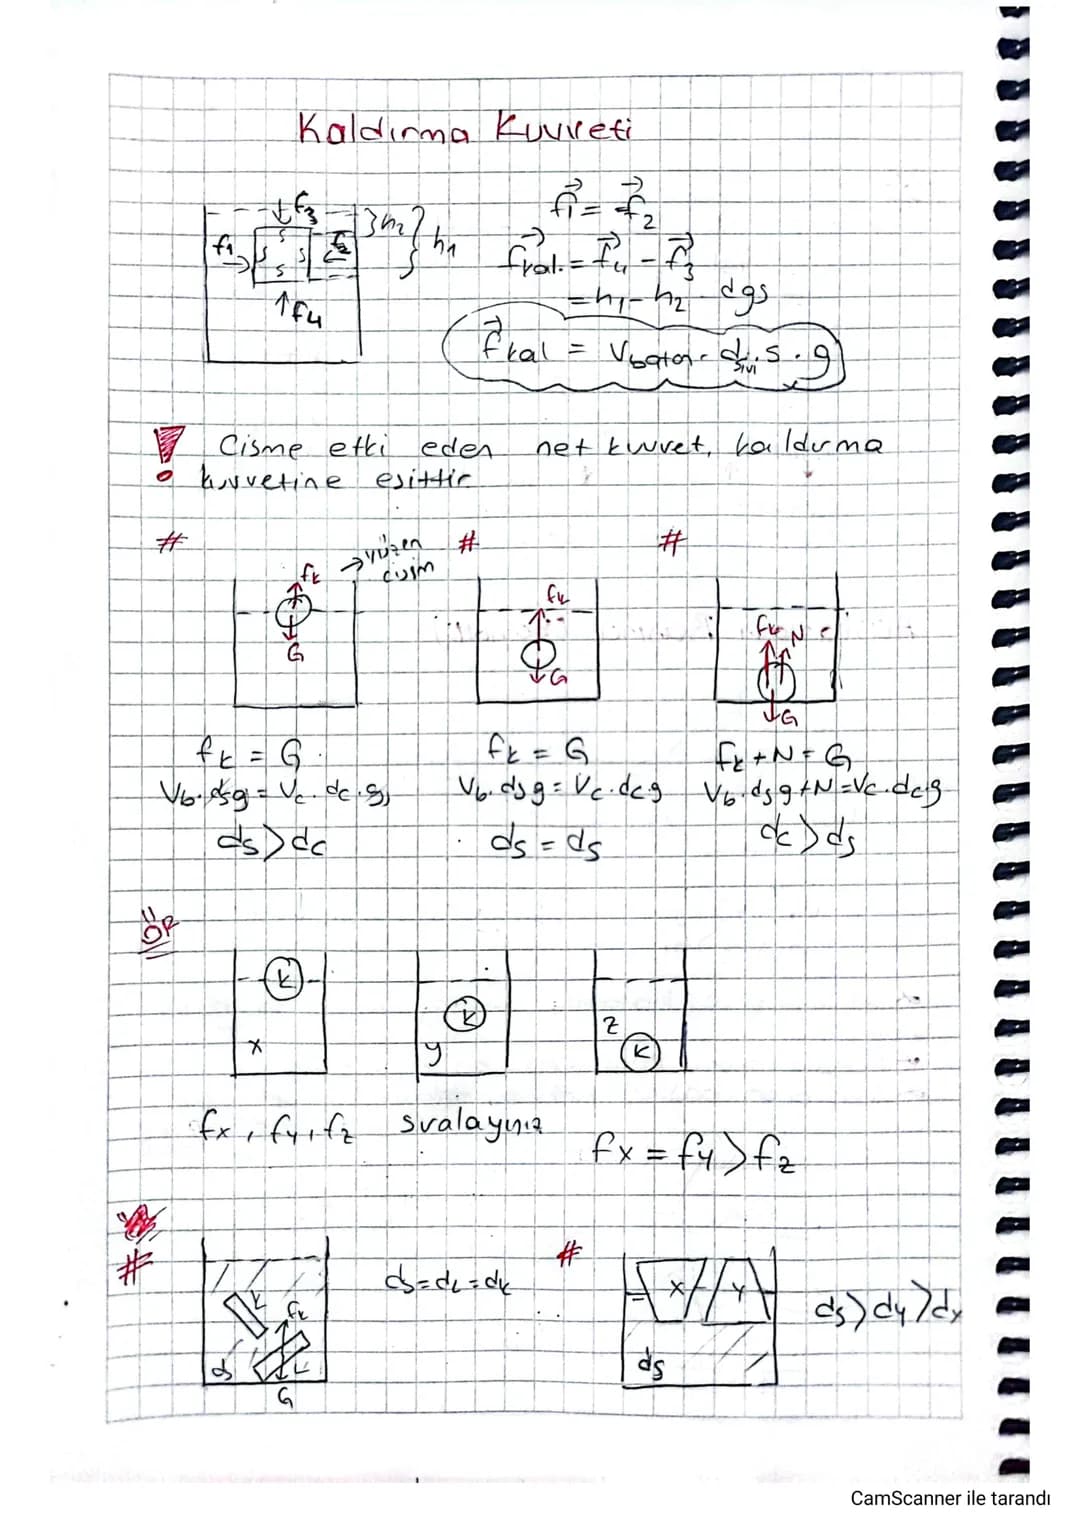 Kaldırma Kuvveti
f3
f1
f2
}h2
} h1
f4
f1 = f2
fkal. = f4 - f3
= h1 - h2 dgs
fkal = Vbatan . dsıvı . s . g
! Cisme etki eden net kuvvet, kaldırma
kuvvetine eşittir
# # #
fk → yüzen cisim
G
fk
G
fk N
G
fk = G
Vb.dsg = Vc.dc.g
ds > dc
fk = G
Vb.dsg = Vc.dcg
ds = ds
fk + N = G
Vb.dsg + N = Vc.dcg
dc > ds
ÖR
K K K
x y z
fx, fy, fz sıralayınız
fx = fy > fz
# #
K
fk
L
ds
G
ds = dL = dK
X Y
ds
ds > dy > dx
CamScanner ile tarandı